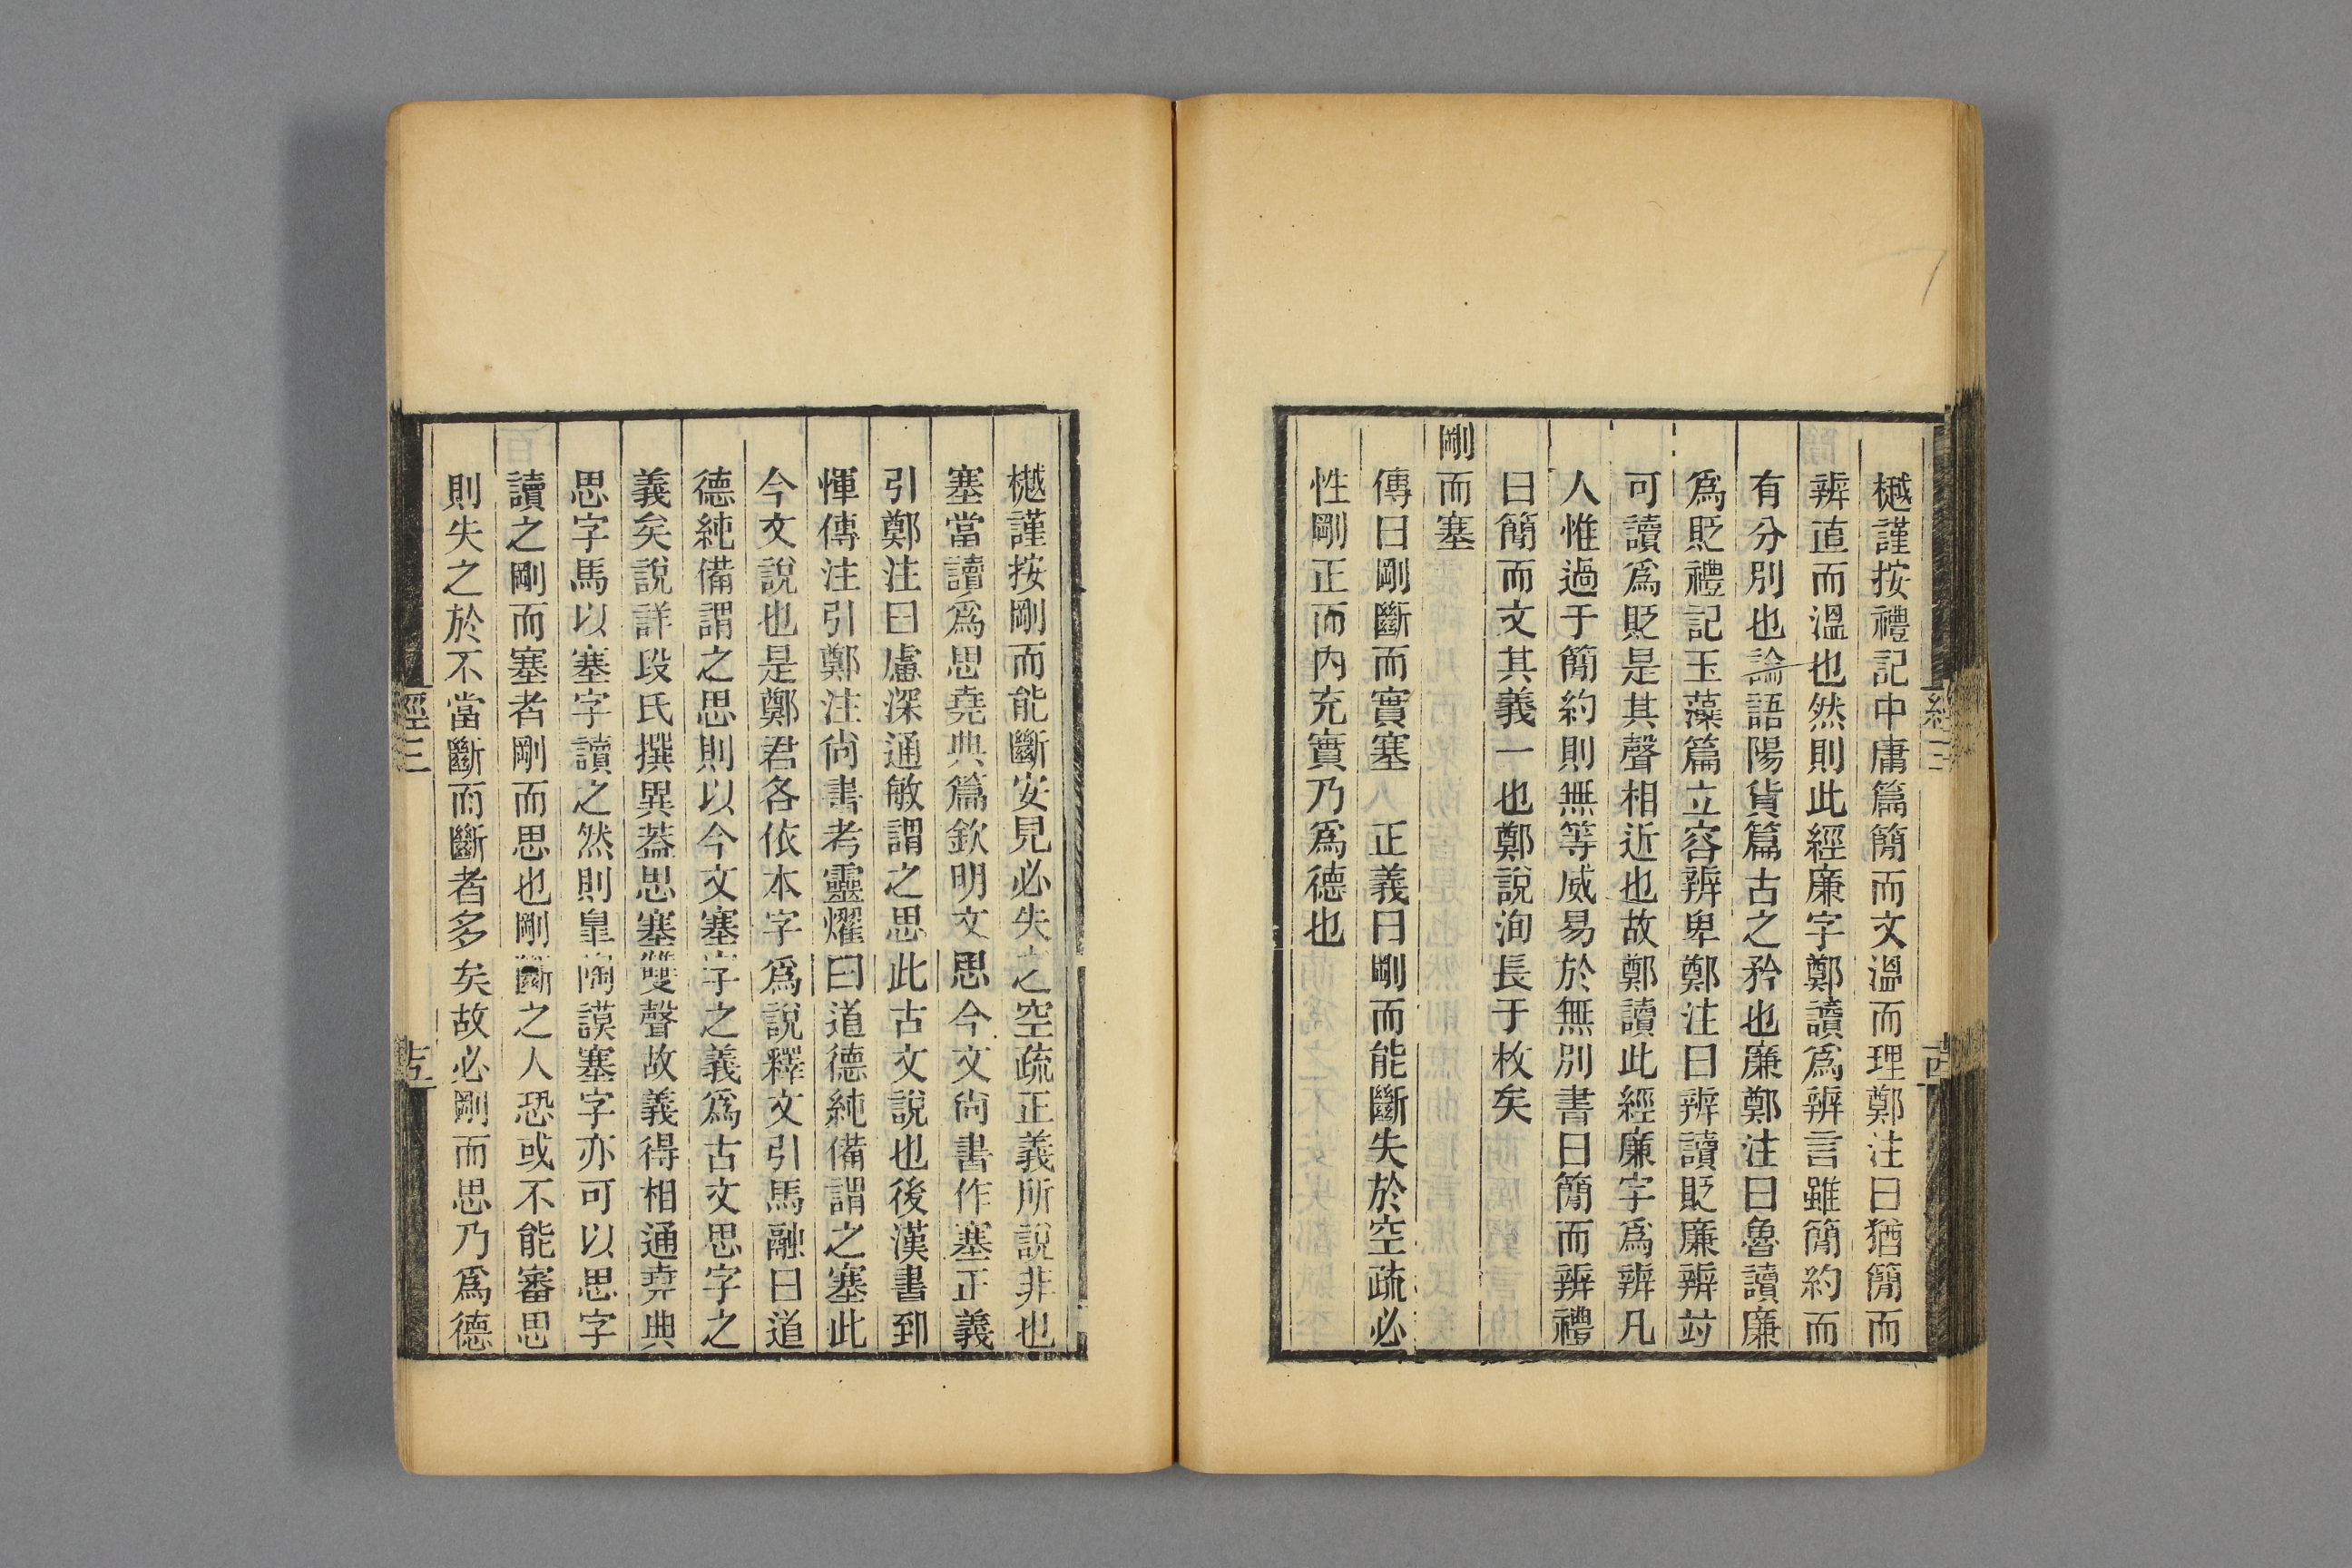 樾謹按禮記中庸篇簡而文溫而理鄭注曰猶簡而
辨直而溫也然則此經廉字鄭讀爲辨言雖簡約而
有分別也論語陽貨篇古之矜也廉鄭注曰魯讀廉
爲貶禮記玉藻篇立容辨卑鄭注曰辨讀貶廉辨竝
可讀爲貶是其聲相近也故鄭讀此經廉字爲辨凡
人惟過于簡約則無等威易於無別書曰簡而辨禮
曰簡而文其義一也鄭說洵長于枚矣
剛而塞
傳曰剛斷而實塞 正義曰剛而能斷失於空疏必
性剛正而內充實乃爲德也
經三
樾謹按剛而能斷安見必失之空疏正義所說非也
塞當讀爲思堯典篇欽明文思今文尚書作塞正義
引鄭注曰慮深通敏謂之思此古文說也後漢書郅
惲傳注引鄭注尚書考靈燿曰道德純備謂之塞此
今文說也是鄭君各依本字爲說釋文引馬融曰道
德純備謂之思則以今文塞字之義爲古文思字之
義矣說詳段氏撰異蓋思塞雙聲故義得相通堯典
思字馬以塞字讀之然則皐陶謨塞字亦可以思字
讀之剛而塞者剛而思也剛斷之人恐或不能審思
則失之於不當斷而斷者多矣故必剛而思乃爲德
經三